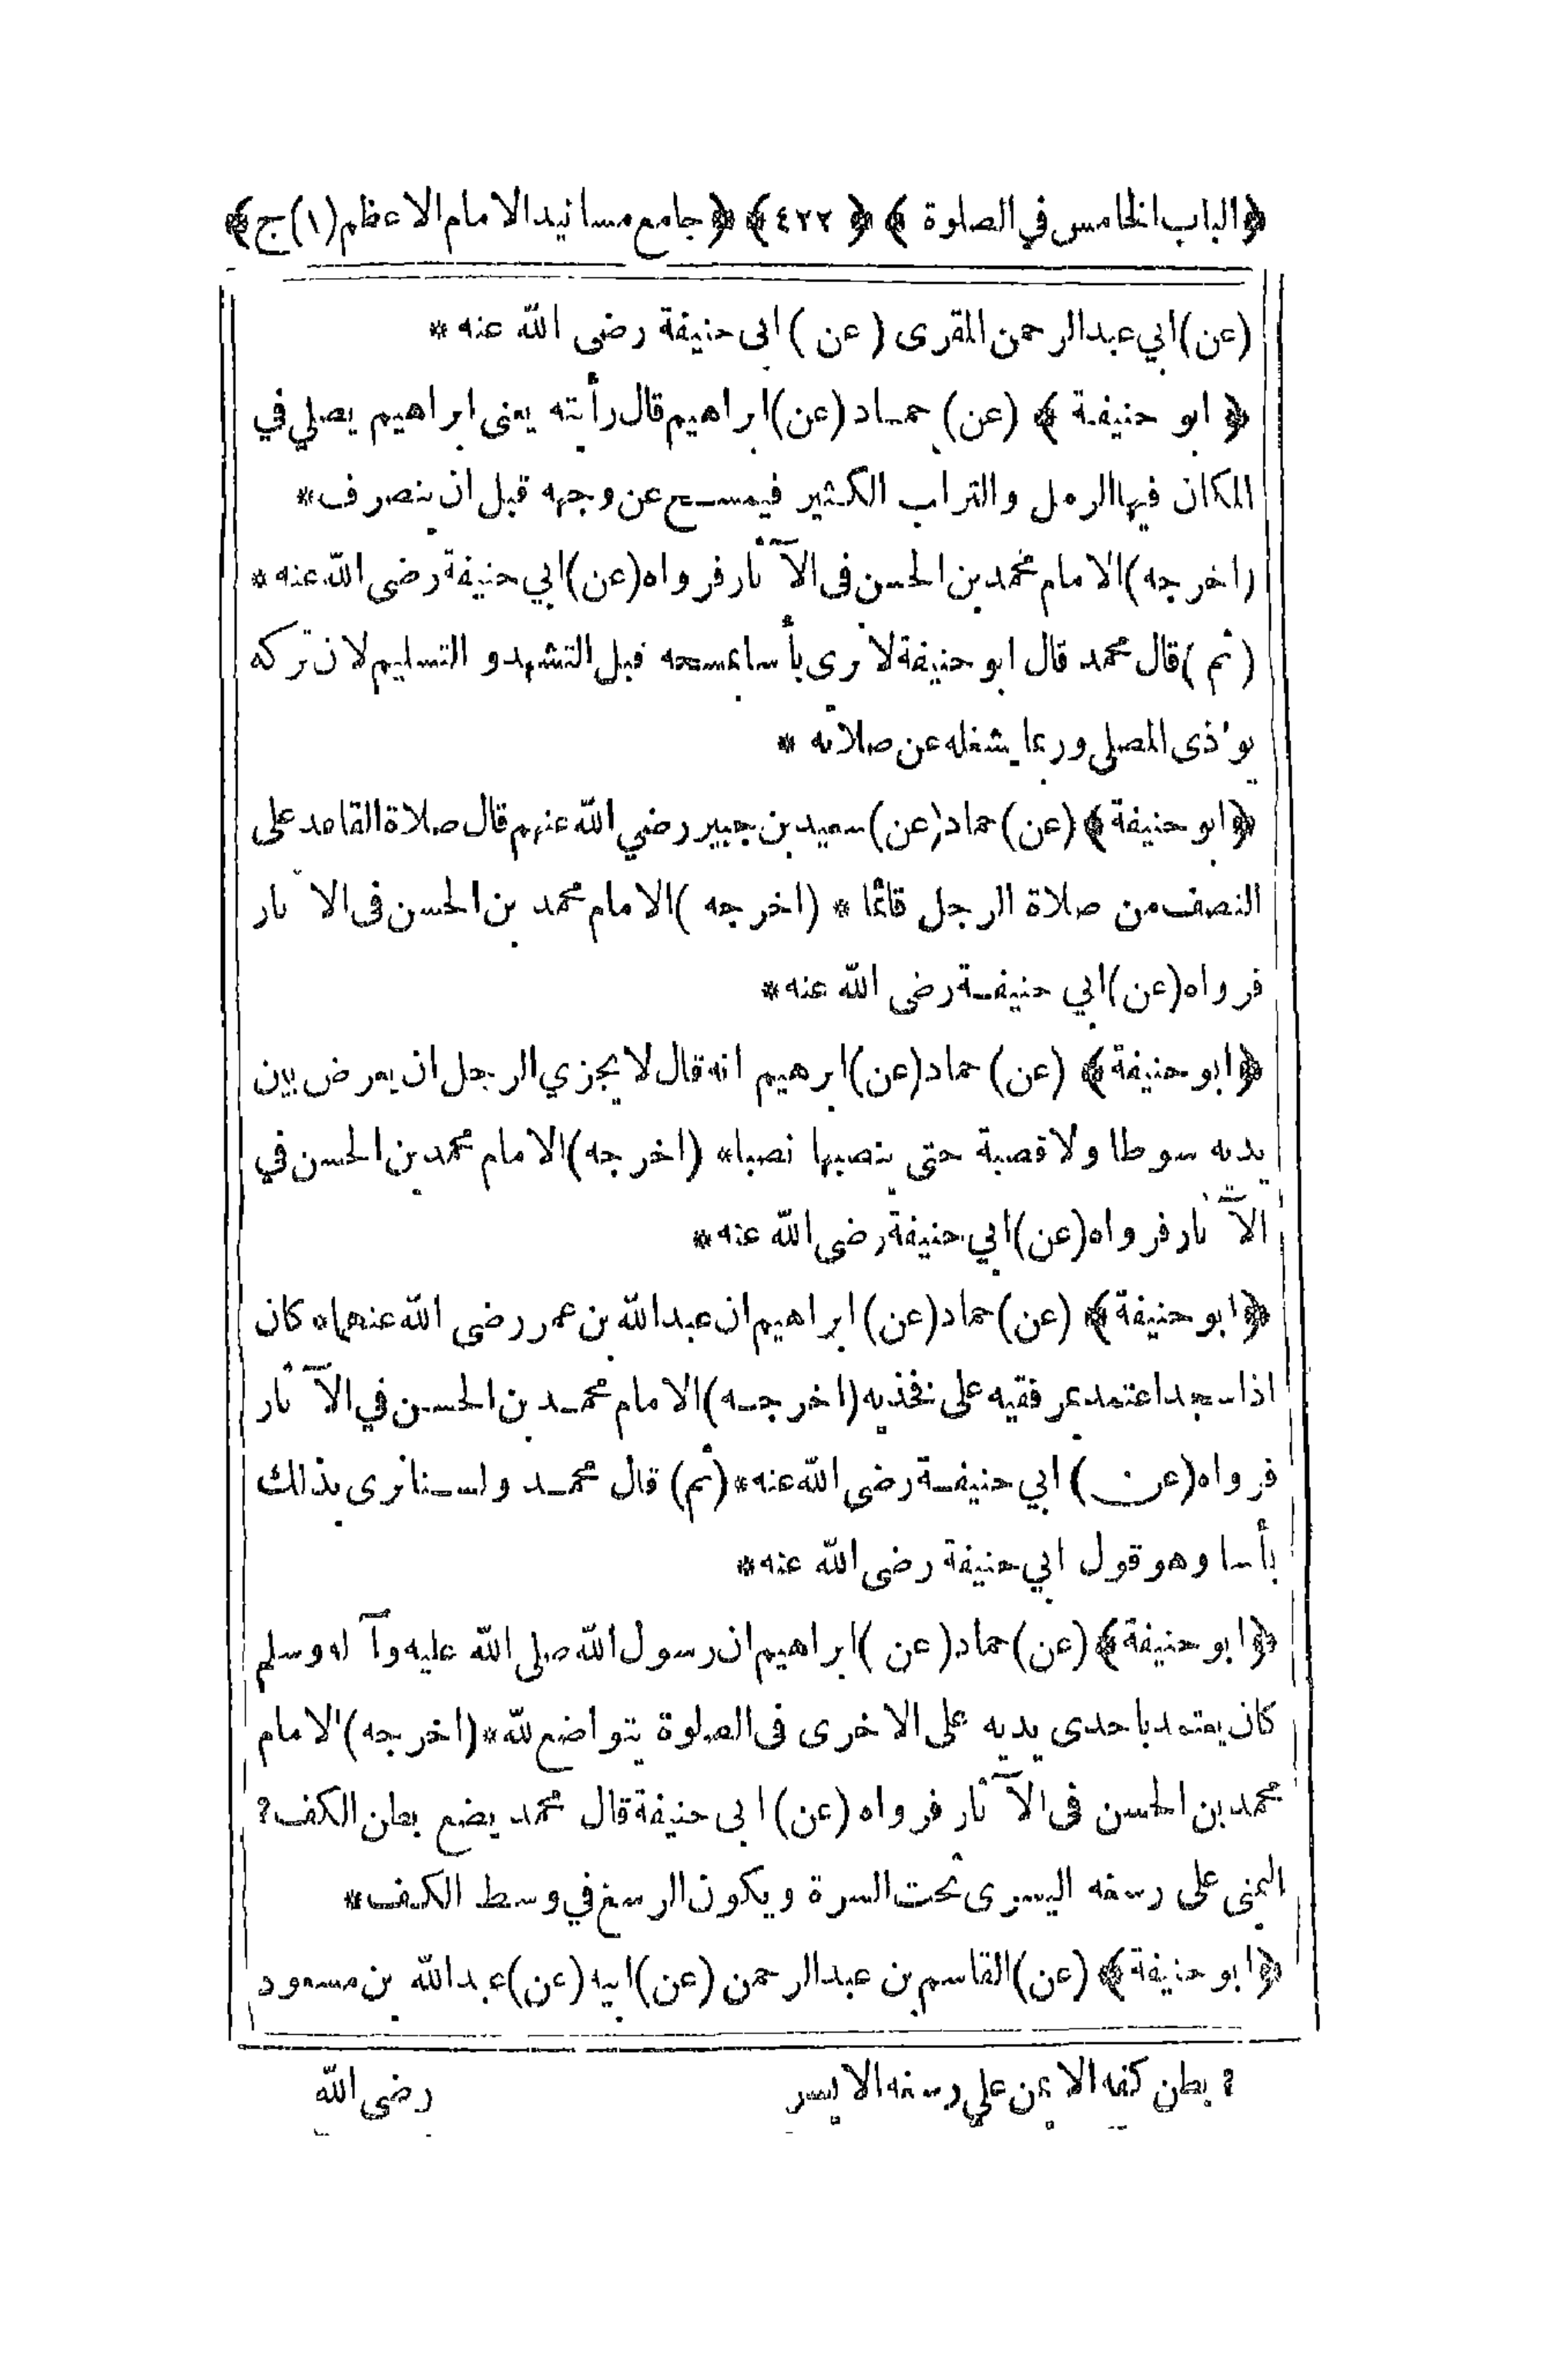 ﴿الباب الخامس في الصلوة﴾ ﴿٤٢٢﴾ ﴿جامع مسانيد الامام الاعظم (١) ج﴾
(عن) ابي عبد الرحمن المقرى (عن) ابى حنيفة رضى الله عنه *
﴿ابو حنيفة﴾ (عن) حماد (عن) ابراهيم قال رأيته يعنى ابراهيم يصلي في
المكان فيها الرمل والتراب الكثير فيمسح عن وجهه قبل ان ينصرف *
(اخرجه) الامام محمد بن الحسن فى الآثار فرواه (عن) ابي حنيفة رضى الله عنه *
(ثم) قال محمد قال ابو حنيفة لا نرى بأسا بمسحه قبل التشهد و التسليم لان تركه
يوٴذى المصلى وربما يشغله عن صلاته *
﴿ابو حنيفة﴾ (عن) حماد (عن) سعيد بن جبير رضي الله عنهم قال صلاة القاعد على
النصف من صلاة الرجل قائما * (اخرجه) الامام محمد بن الحسن فى الاثار
فرواه (عن) ابي حنيفة رضى الله عنه *
﴿ابو حنيفة﴾ (عن) حماد (عن) ابرهيم انه قال لا يجزي الرجل ان يعرض بين
يديه سوطا ولا قصبة حتى ينصبها نصبا * (اخرجه) الامام محمد بن الحسن في
الآثار فرواه (عن) ابي حنيفة رضى الله عنه *
﴿ابو حنيفة﴾ (عن) حماد (عن) ابراهيم ان عبد الله بن عمر رضى الله عنهما ه كان
اذا سجد اعتمد بمرفقيه على فخذيه (اخرجه) الامام محمد بن الحسن في الآثار
فرواه (عن) ابي حنيفة رضى الله عنه * (ثم) قال محمد ولسنا نرى بذلك
بأسا وهو قول ابي حنيفة رضى الله عنه *
﴿ابو حنيفة﴾ (عن) حماد (عن) ابراهيم ان رسول الله صلى الله عليه وآله وسلم
كان يعتمد باحدى يديه على الاخرى فى الصلوة يتواضع لله * (اخرجه) الامام
محمد بن الحسن فى الآثار فرواه (عن) ابى حنيفة قال محمد يضع بطن الكف ٢
اليمنى على رسغه اليسرى تحت السرة ويكون الرسغ في وسط الكف *
﴿ابو حنيفة﴾ (عن) القاسم بن عبد الرحمن (عن) ابيه (عن) عبد الله بن مسعود
٢ بطن كفه الايمن علي رسغه الايسر
رضى الله